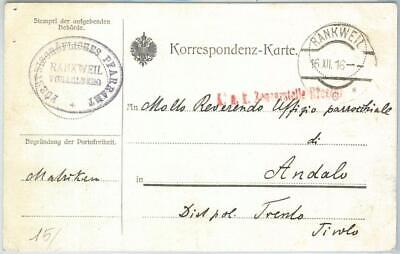 Stempel der aufgebenden
Behörde.
FÜRSTBISCHÖFLICHES PFARRAMT
RANKWEIL
VORARLBERG
Korrespondenz-Karte.
RANKWEIL
15.XII.16
K. u. k. Zensurstelle
An Molto Reverendo Uffizio parrocchiale
di
Begründung der Portofreiheit.
in Andalo
Matriken
Dist pol. Trento
Tirolo
15/